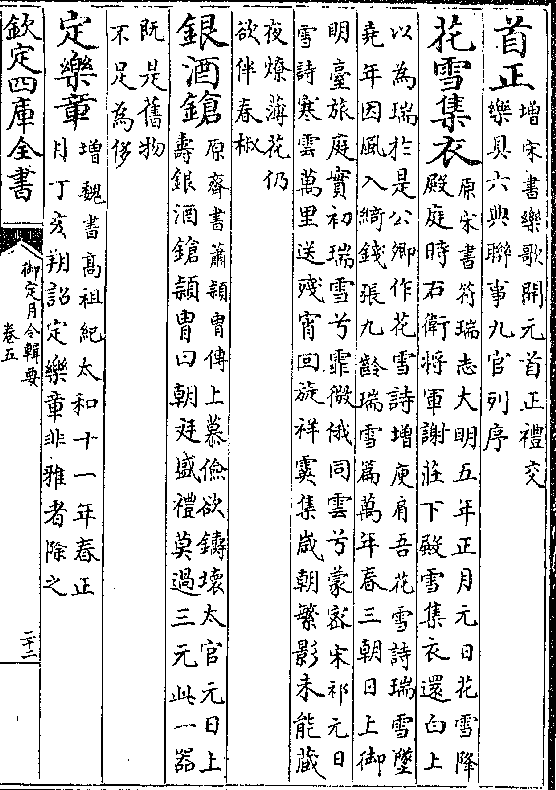 首正增宋書樂歌開元首正禮交
樂具六典聯事九官列序
花雪集衣原宋書符瑞志大明五年正月元日花雪降
殿庭時右衛將軍謝莊下殿雪集衣還白上
以為瑞於是公卿作花雪詩增庾肩吾花雪詩瑞雪墜
堯年因風入綺錢張九齡瑞雪篇萬年春三朝日上御
明臺旅庭實初瑞雪兮霏微俄同雲兮蒙密宋祁元日
雪詩寒雲萬里送殘宵回旋祥霙集歲朝繁影未能藏
夜燎薄花仍
欲伴春椒
銀酒鎗原齊書蕭穎胄傳上慕儉欲鑄壞太官元日上
壽銀酒鎗穎胄曰朝廷盛禮莫過三元此一器
既是舊物
不足為侈
定樂章增魏書高祖紀太和十一年春正
月丁亥朔詔定樂章非雅者除之
欽定四庫全書
御定月令輯要
卷五
二十二